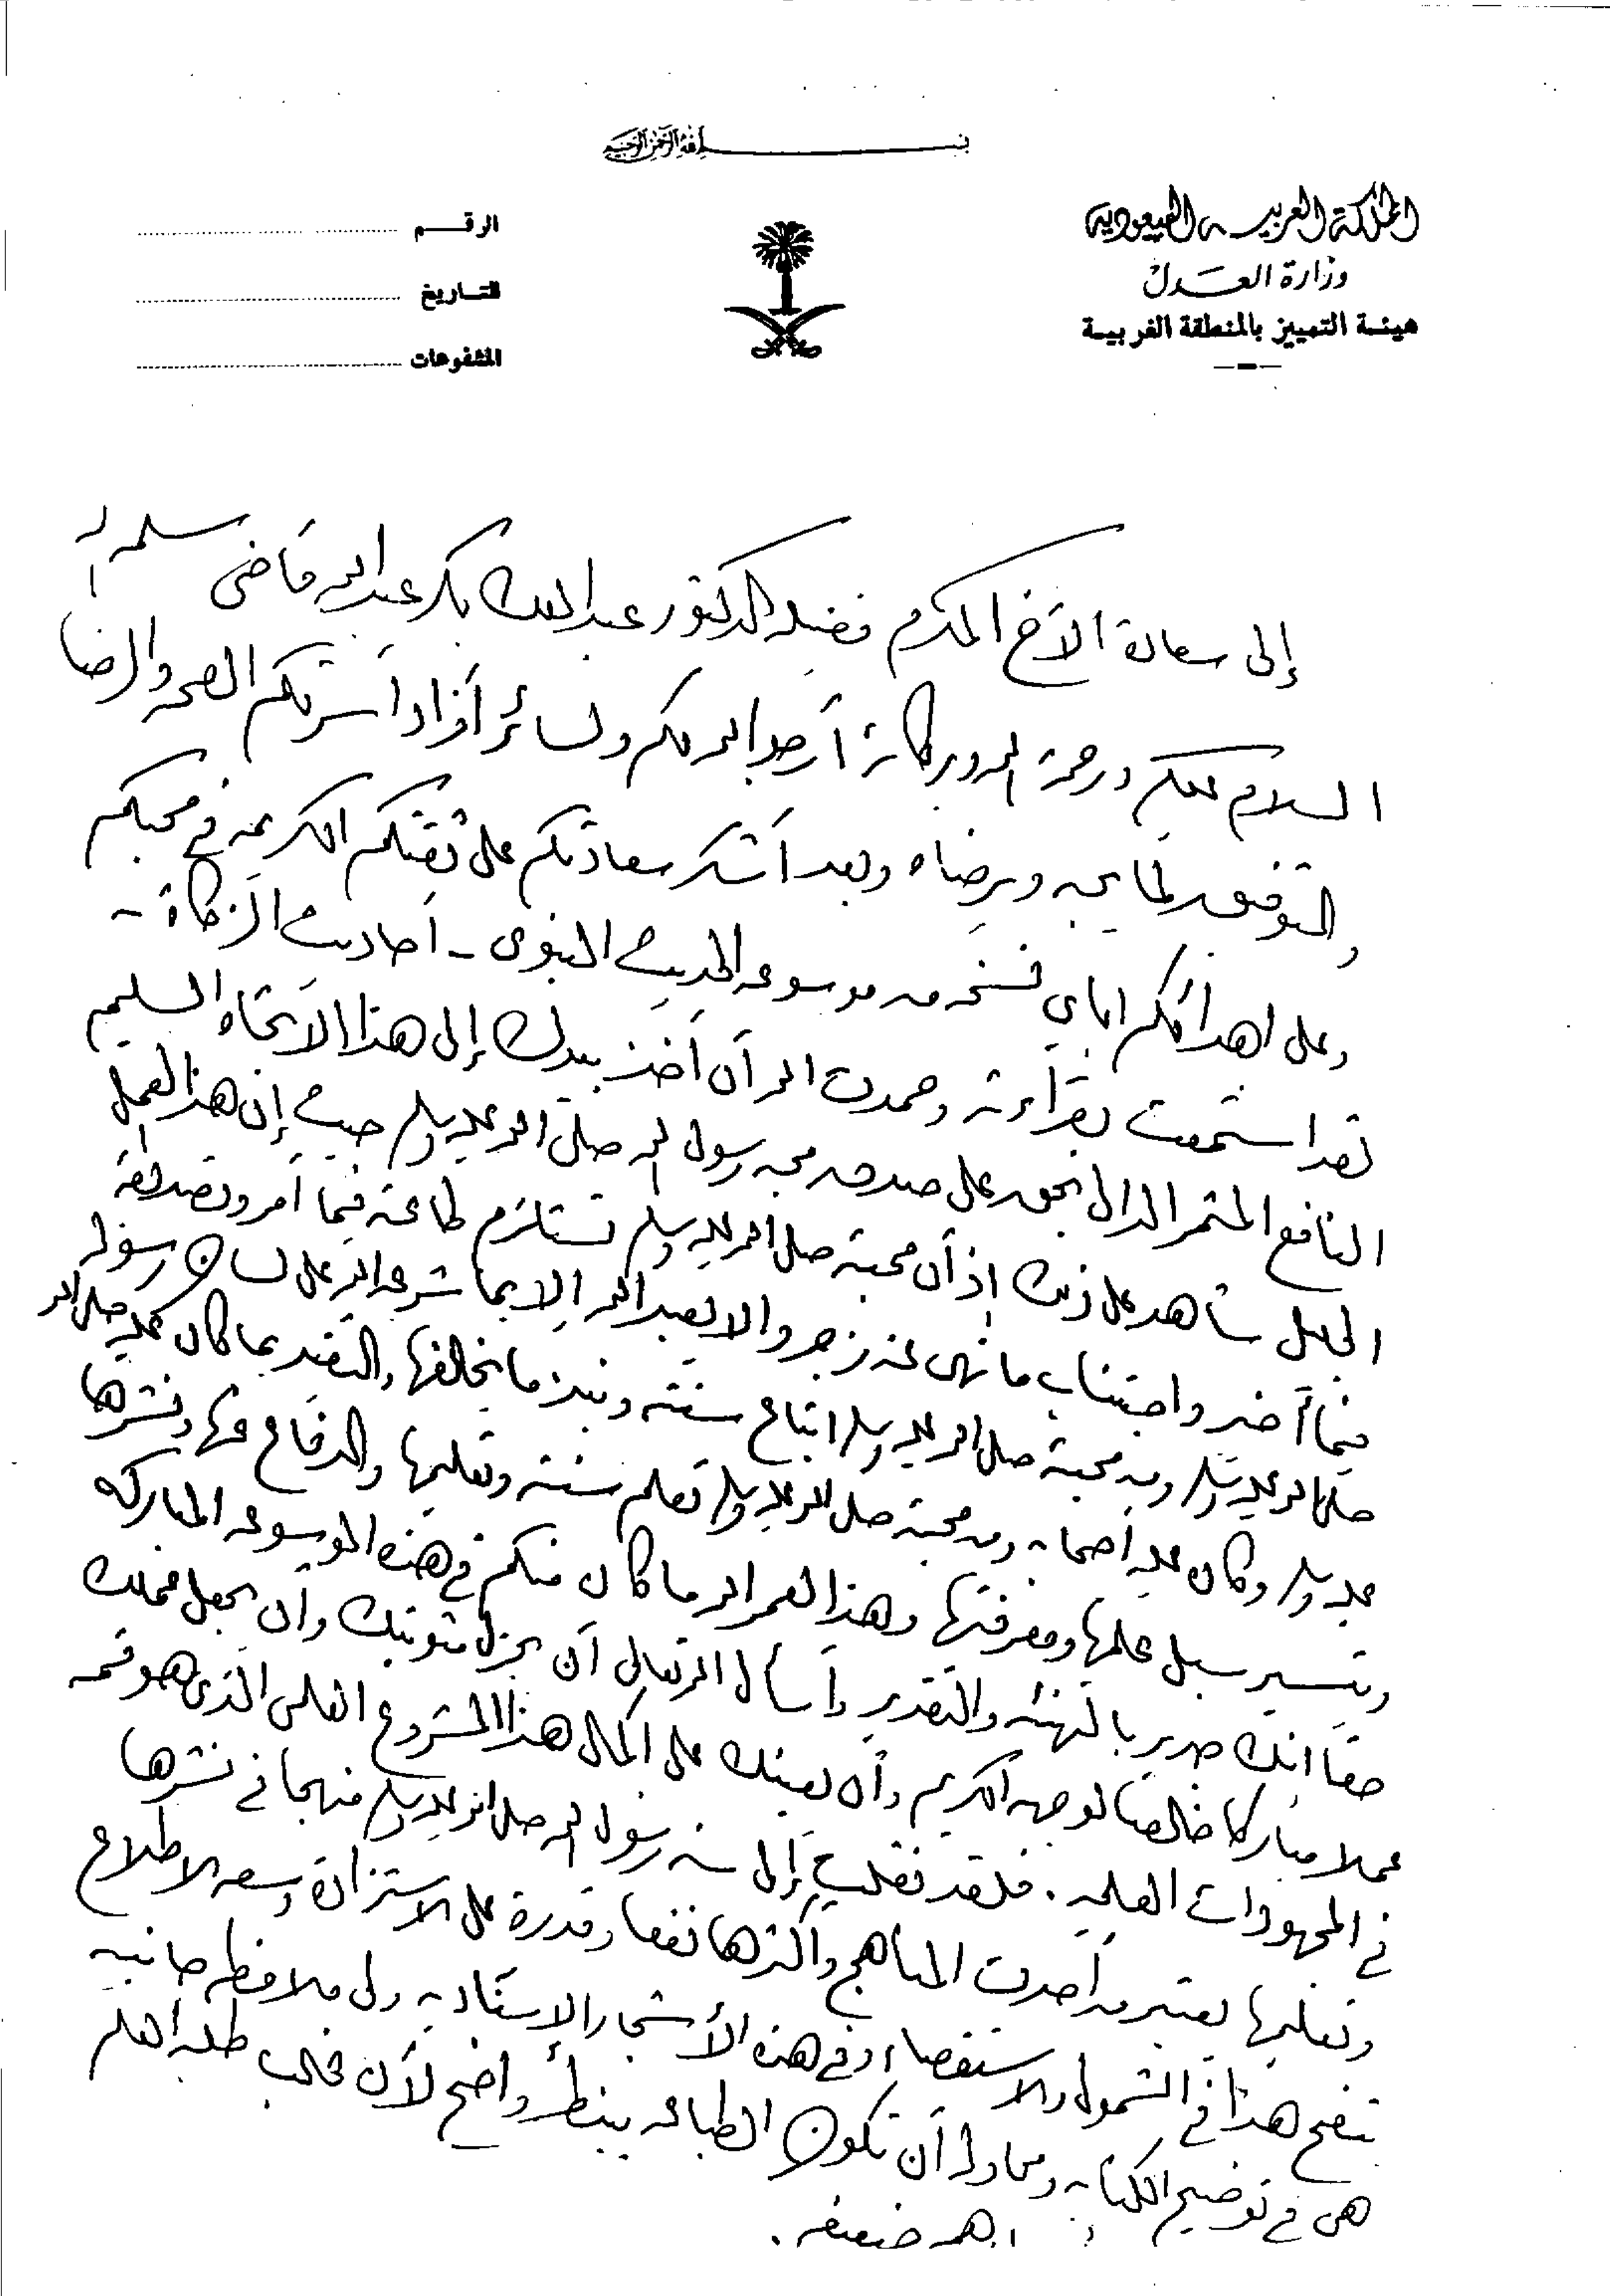 بسم الله الرحمن الرحيم
المملكة العربية السعودية
وزارة العدل
هيئة التمييز بالمنطقة الغربية
الرقم
التاريخ
المشفوعات
إلى سعادة الأخ المكرم فضيلة الدكتور عبدالملك بكر عبدالله قاضي سلمه الله
السلام عليكم ورحمة الله وبركاته أرجو الله لكم ولسائر أفراد أسرتكم الصحة والرضا
والتوفيق لما يحبه ويرضاه وبعد أشكر سعادتكم على ثقتكم الكريمة في محبكم
وعلى اهدائكم اياي نسخة من موسوعة الحديث النبوي - أحاديث الزكاة -
لقد استمتعت بقراءته وحمدت الله أن أخذ بيدك إلى هذا الاتجاه السليم
النافع المثمر الدال بحق على صدق محبة رسول الله صلى الله عليه وسلم حيث إن هذا العمل
الجليل شاهد على ذلك إذ أن محبته صلى الله عليه وسلم تستلزم طاعته فيما أمر وتصديقه
فيما أخبر واجتناب ما نهى عنه وزجر والا يعبد الله إلا بما شرعه الله على لسان رسوله
صلى الله عليه وسلم ومن محبته صلى الله عليه وسلم اتباع سنته ونبذ ما يخالفها والتقيد بما كان عليه صلى الله
عليه وسلم وكان عليه أصحابه ومن محبته صلى الله عليه وسلم تعلم سنته وتعليمها والدفاع عنها ونشرها
وتيسير سبل علمها ومعرفتها وهذا لعمر الله ما كان منكم في هذه الموسوعة المباركة
حقا انك جدير بالتهنئة والتقدير وأسأل الله تعالى أن يجزل مثوبتك وأن يجعل عملك
عملا مباركا خالصا لوجهه الكريم وأن يعينك على اكمال هذا المشروع العلمي الذي هو قمة
في المجهودات العلمية . فلقد نقلت إلى سنة رسول الله صلى الله عليه وسلم منهجا في نشرها
وتعليمها يعتبر من أحدث المناهج وأكثرها نفعا وقدرة على الاستزادة وسعة الاطلاع
يتضح هذا في الشمول والاستقصاء وفي هذه الأشجار الإسنادية ولي ملاحظة جانبية
هي في توضيح الكتابة ومحاولة أن تكون الطباعة ببنط واضح لأن غالب طلبة العلم
ضعيفة .